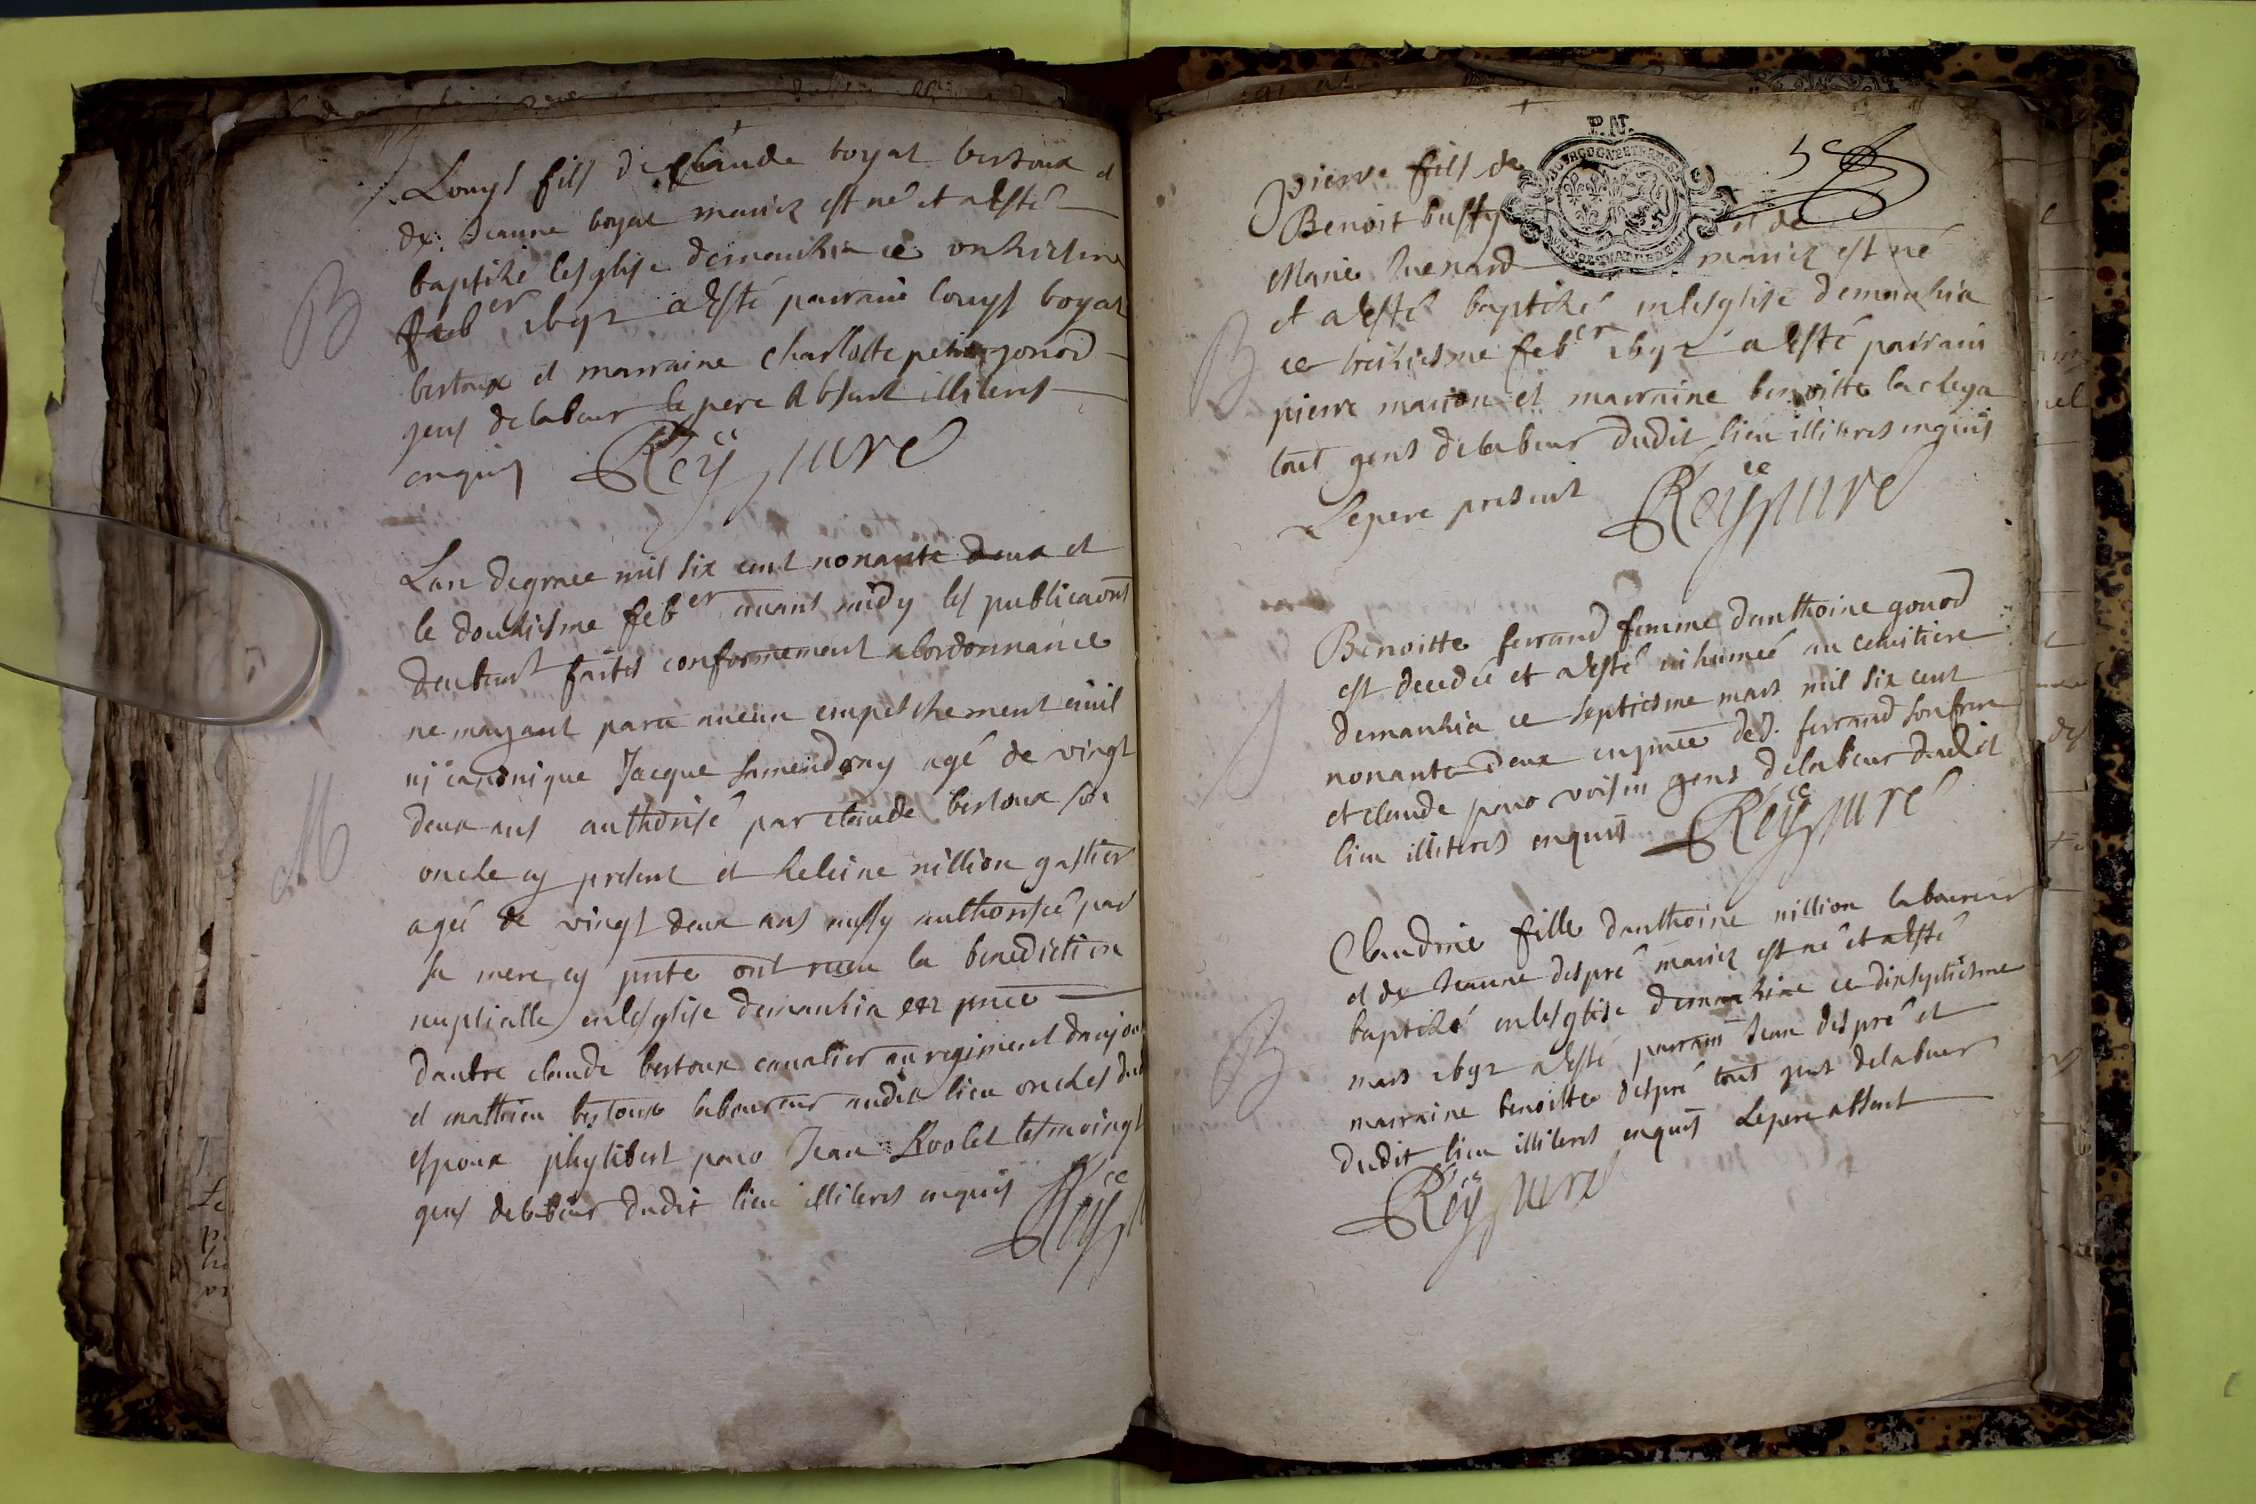 Louys fils de Claude boyat bertoux et
de Jeanne boyat mariez est né et a esté
baptizé lesglise demanzia ce onziesme
feb er 1692 a esté parrain louys boyat
bertoux et marraine Charlotte petit gonod
gens delabeur le pere absent illiteres
enquis Reÿ cure
B
Lan degrace mil six cent nonante deux et
le douziesme feb er avant midy les publicaons
deubent faites conformement alordonnance
ne nayant paru aucun empeschement civil
nj canonique Jacque agé de vingt
deux ans authorisé par claude bertoux son
oncle cy present et heleine nillion gastier
agéé de vingt deux ans aussy authoriséé par
sa mere cy pnte ont receu la benediction
nuptialle enlesglise demanzia en pnce
dautre claude bertoux cavalier au regiment danjou
et mathieu bertoux laboureur audit lieu oncles dud
espoux phylibert pavo Jean Rolet tesmoings
gens delabeur dudit lieu illiteres enquis Reÿ
M
P.N.
BOURGOGNE ET BRESSE
Pierre fils de
Benoit bussy et de
Marie Juenard mariez est né
et a esté baptizé enlesglise demanzia
ce treiziesme feb er 1692 a esté parrain
pierre marion et marraine benoitte lacleya
tout gens delabeur dudit lieu illiteres enquis
Lepere present Reÿ cure
B
Benoitte ferrand femme danthoine gonod
est decedéé et a esté inhuméé au cemitiere
demanzia ce septiesme mars mil six cent
nonante deux en pnce de d. ferrand son frere
et claude pavo voisin gens delabeur dudit
lieu illiteres enquis Reÿ cure
Claudine fille danthoine nillion laboureur
et de Jeanne despré mariez est né et a esté
baptizéé enlesglise demanzia ce dixseptiesme
mars 1692 a esté parrain Jean despré et
marraine benoitte despré tous gens delabeur
dudit lieu illiteres enquis Lepere absent
Reÿ cure
B